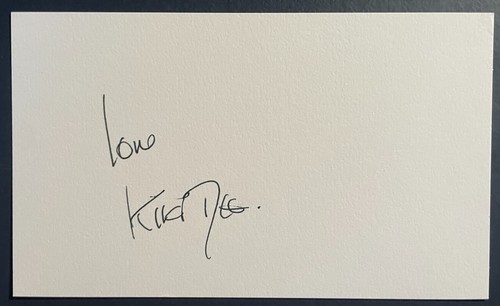 Love
Kiki Dee.